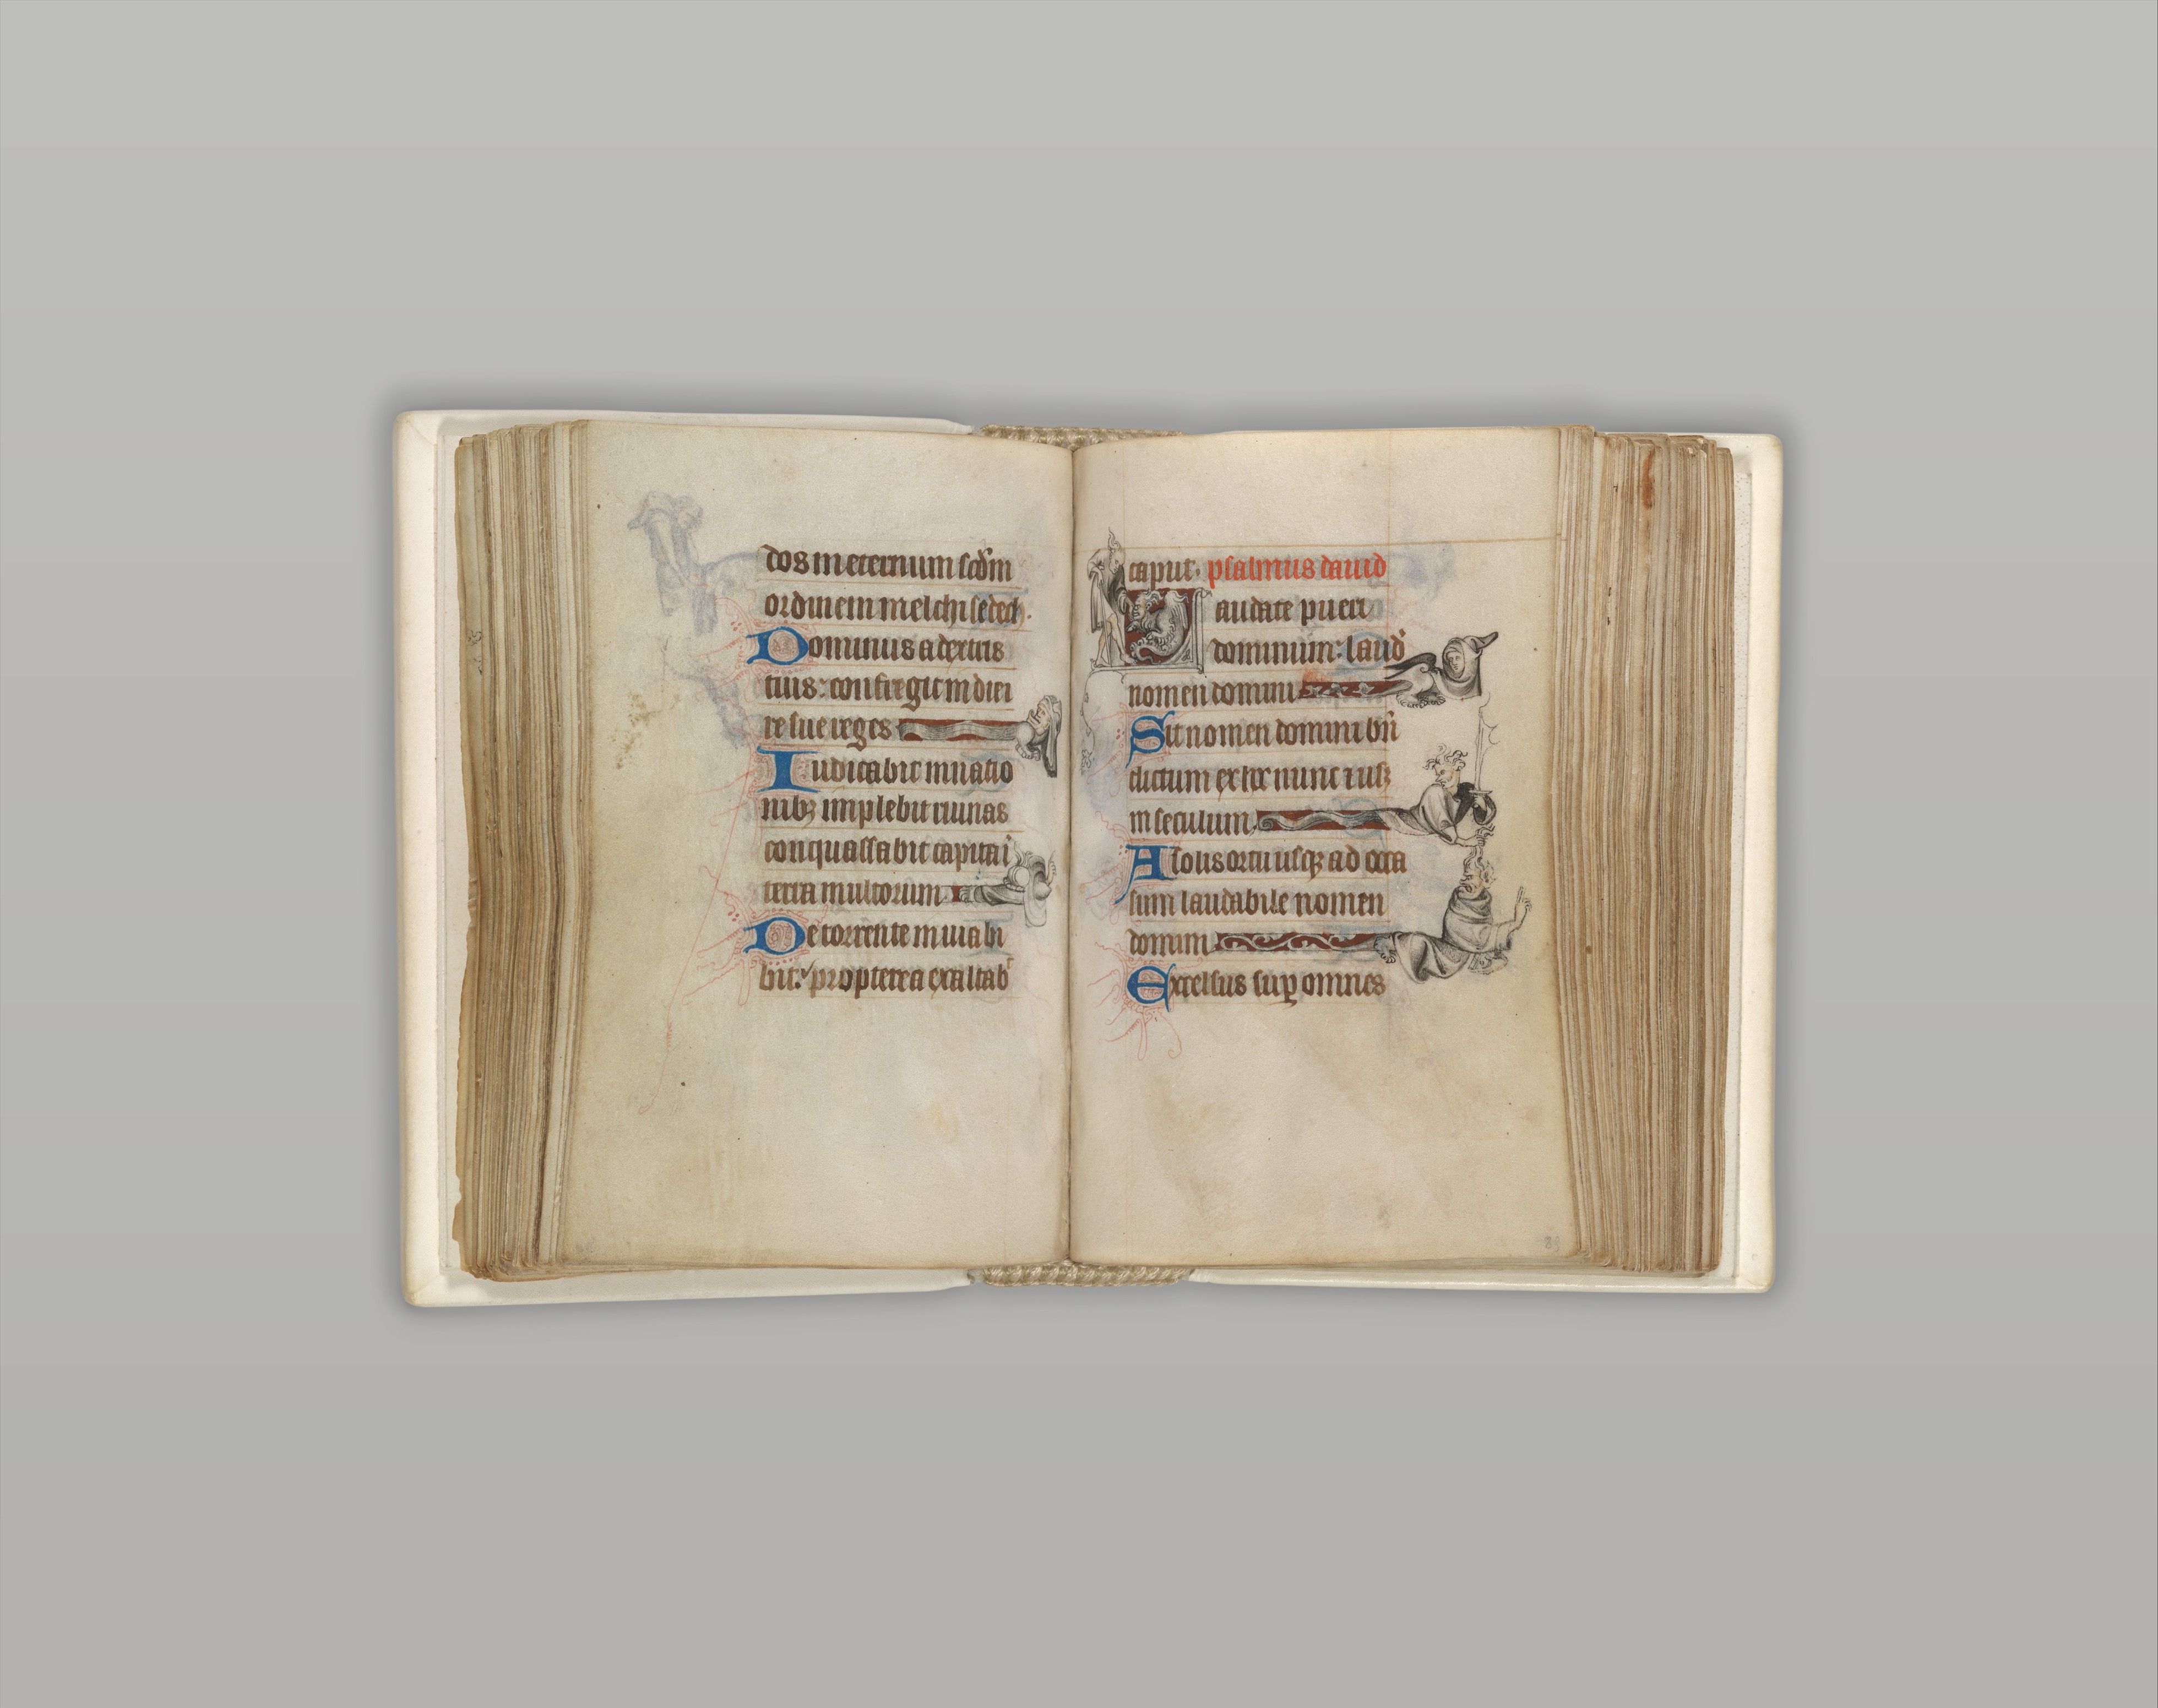 dos in eternum scdm
ordinem melchisedech.
Dominus a dextris
tuis: confregit in die i
re sue reges
Iudicabit in natio
nibȝ implebit ruinas
conquassabit capita ī
terra multorum
De torrente in uia bi
bit: propterea exaltab'
caput. psalmus dauid
Laudate pueri
dominum: laud'
nomen domini
Sit nomen domini bn̄
dictum ex hoc nunc ⁊ usqȝ
in seculum.
A solis ortu usqȝ ad occa
sum laudabile nomen
domini
Excelsus suꝑ omnes
89